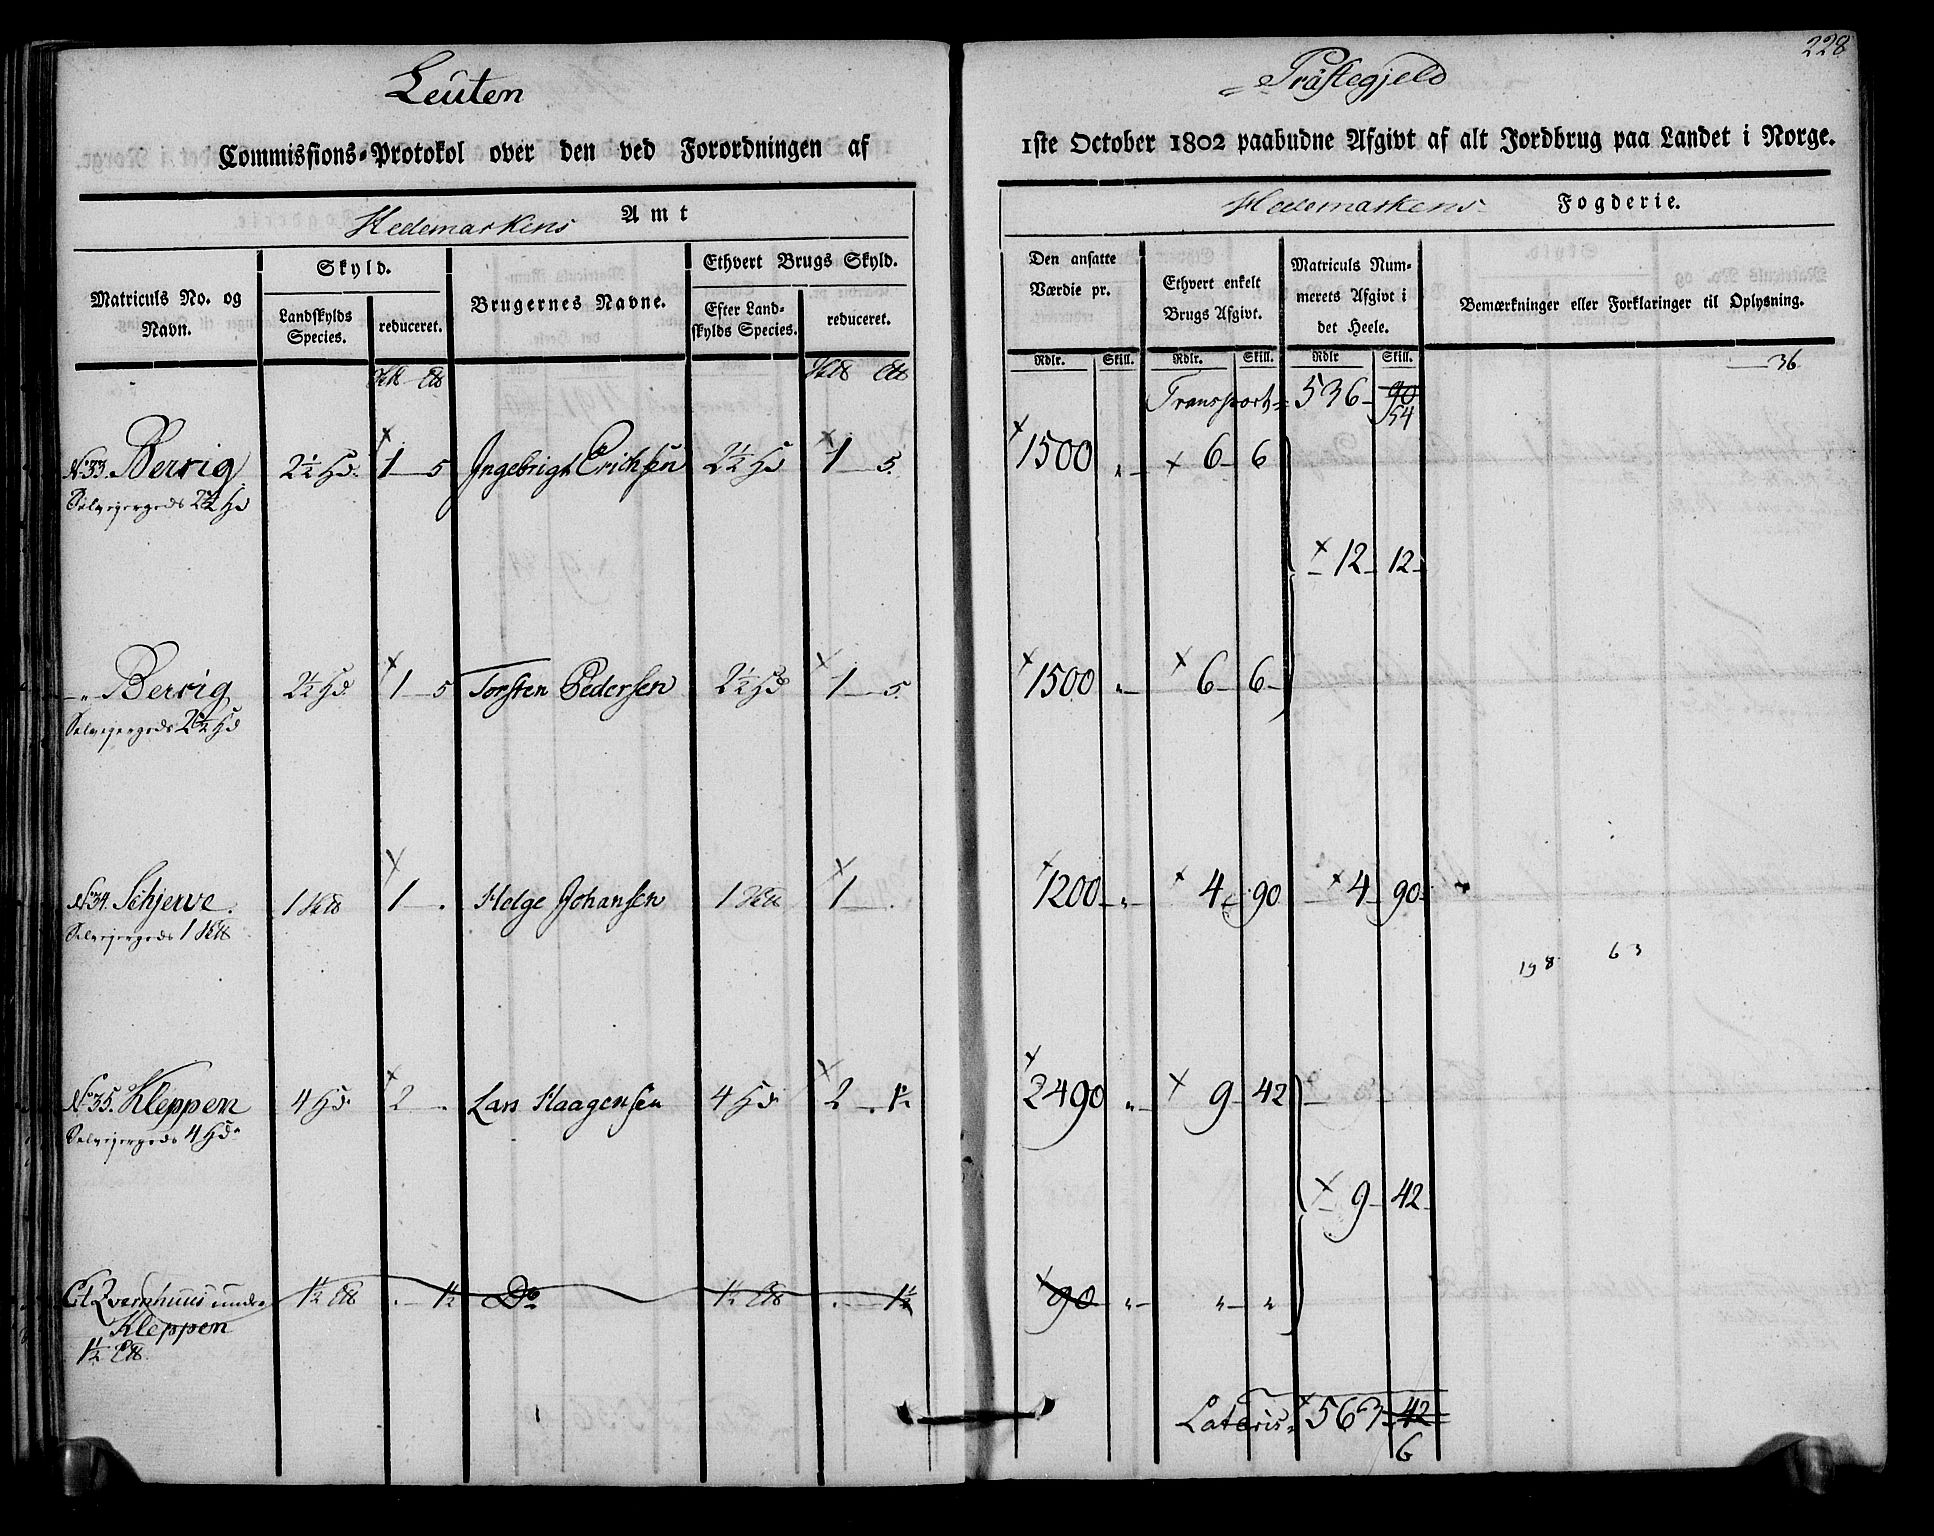 228
Leuten Præstegjeld
Commissions-Protokol over den ved Forordningen af 1ste October 1802 paabudne Afgivt af alt Jordbrug paa Landet i Norge.
Hedemarkens Amt Hedemarkens Fogderie.
Matriculs No. og Navn. | Skyld. | Brugernes Navne. | Ethvert Brugs Skyld. | Den ansatte Værdie pr. | Ethvert enkelt Brugs Afgivt. | Matriculs Nummerets Afgivt i det Heele. | Bemærkninger eller Forklaringer til Oplysning.
Landskylds Species. | reduceret. | Efter Landskylds Species. | reduceret. | Rdlr. | Skill. | Rdlr. | Skill. | Rdlr | Skill.
36
Transport 536 90
54
No 33. Bervig 2½ Hd. 1 5 Ingebrigt Erichsen 2½ Hd 1 5. 1500 „ 6 6
Selveiergods 2½ Hd
12 12
„ Bervig 2½ Hd. 1 5 Torsten Pedersen 2½ Hd 1 5. 1500 „ 6 6
Selveiergods 2½ Hd
No 34. Schjerve. 1 . Helge Johansen 1 . 1200 „ 4 90 4 90
Selveiergods 1
63
No 35. Kleppen 4 Hd. 2 . Lars Haagensen 4 Hd. 2 . 1½ 2490 „ 9 42
Selveiergods 4 Hd.
9 42
Et Qvernhuus under 1½ . 1½ Do 1½ . 1½ 90 „ „ „
Kleppen
1½
Lateris 563 42
6